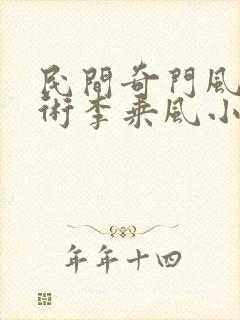 民間奇門風
術李乗風小
年年十四